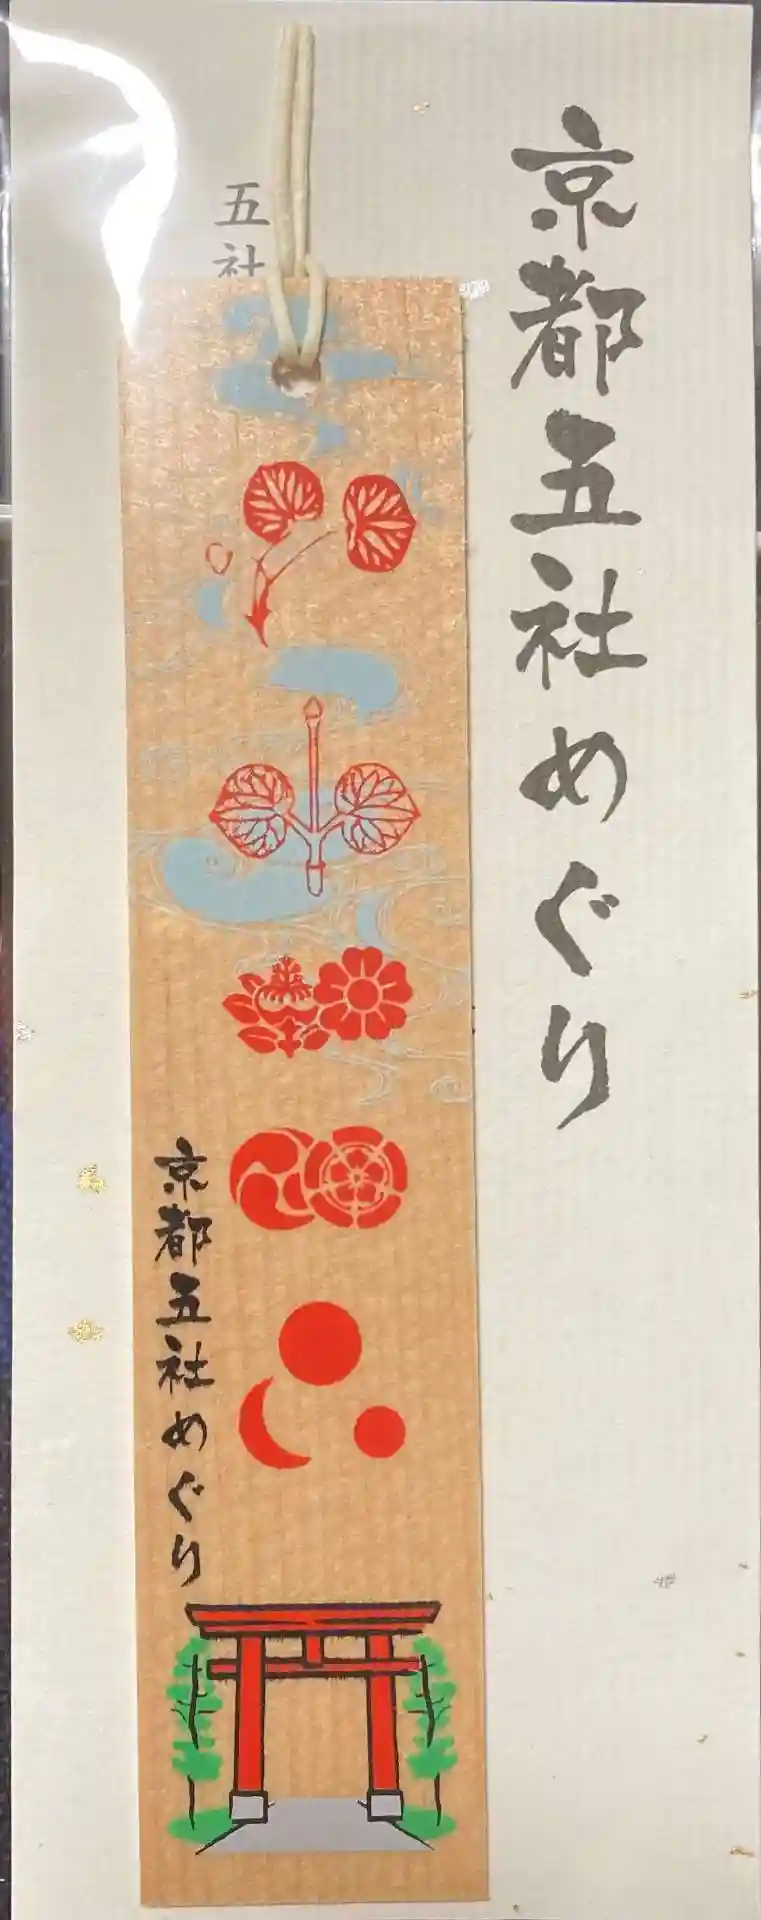 京都五社めぐり
五社
京都五社めぐり